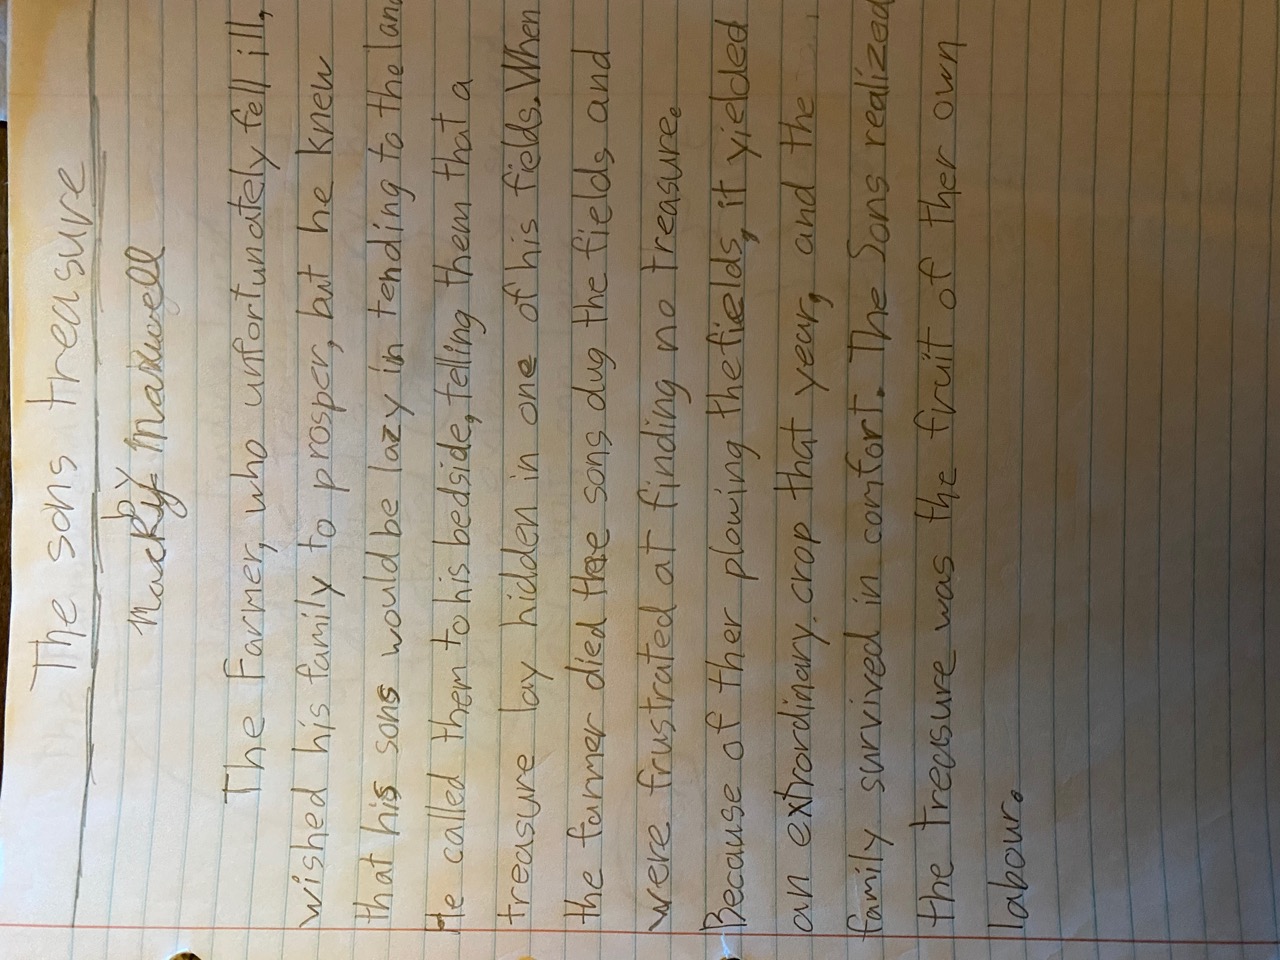 The sons treasure
Macky Maxwell
The Farmer, who unfortunately fell ill,
wished his family to prosper, but he knew
that his sons would be lazy in tending to the land
He called them to his bedside, telling them that a
treasure lay hidden in one of his fields. When
the farmer died thee sons dug the fields and
were frustrated at finding no treasure.
Because of ther plowing the fields, it yielded
an extrordinary crop that year, and the
family survived in comfort. The Sons realized
the treasure was the fruit of ther own
labour.